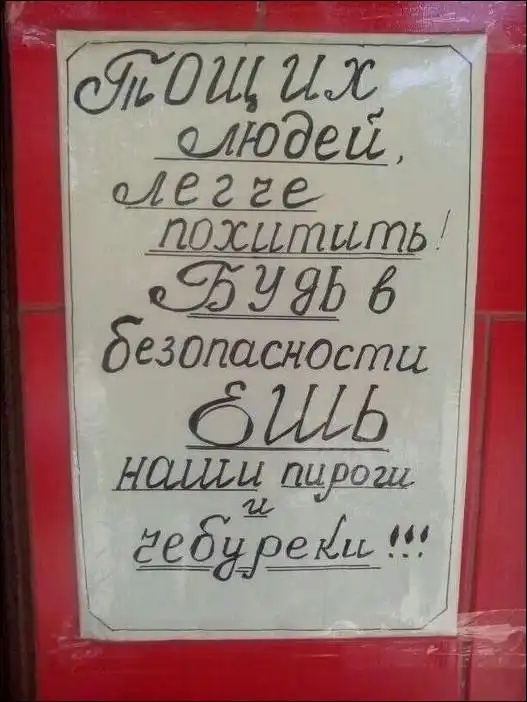 Тощих
людей,
легче
похитить!
Будь в
безопасности
ЕШЬ
наши пироги
и
чебуреки!!!